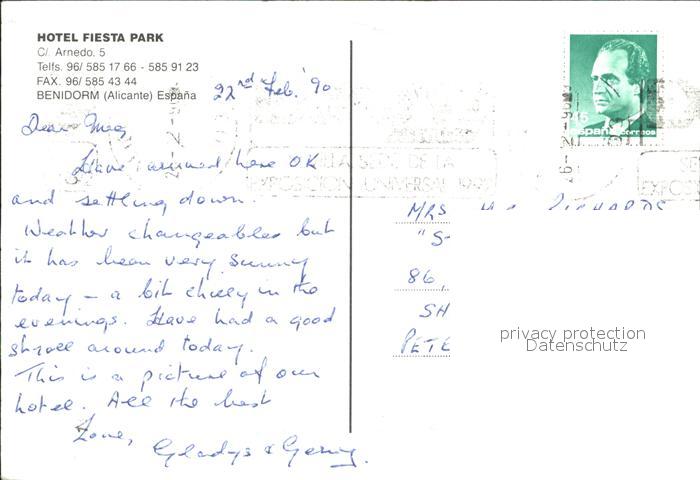 HOTEL FIESTA PARK
C/. Arnedo, 5
Telfs. 96/ 585 17 66 - 585 91 23
FAX. 96/ 585 43 44
BENIDORM (Alicante) España
22nd Feb. '90
Dear Meg,
Have arrived here OK
and settling down.
Weather changeable but
it has been very sunny
today – a bit chilly in the
evenings. Have had a good
stroll around today.
This is a picture of our
hotel. All the best
Love,
Gladys & Gerry.
45
España CORREOS
SEVILLA SEDE DE LA
EXPOSICION UNIVERSAL 1992
SE
EXPOS
MRS
"S-
86,
SH
PETE
privacy protection
Datenschutz